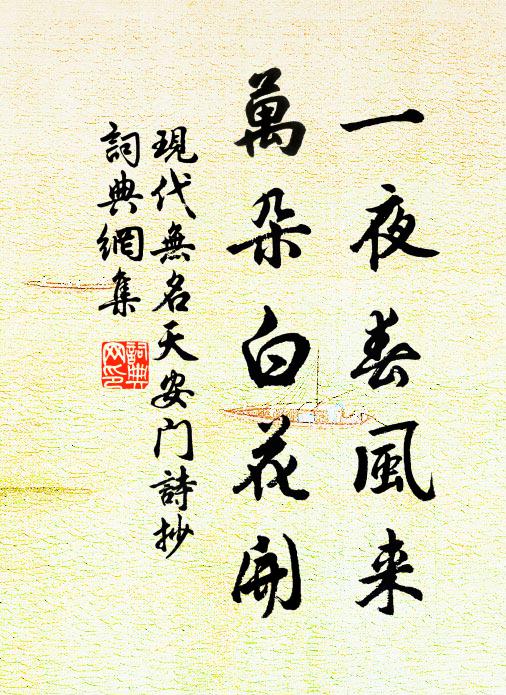 一夜春風来
萬朵白花開
現代無名天安门詩抄
詞典網集
詞典
网印